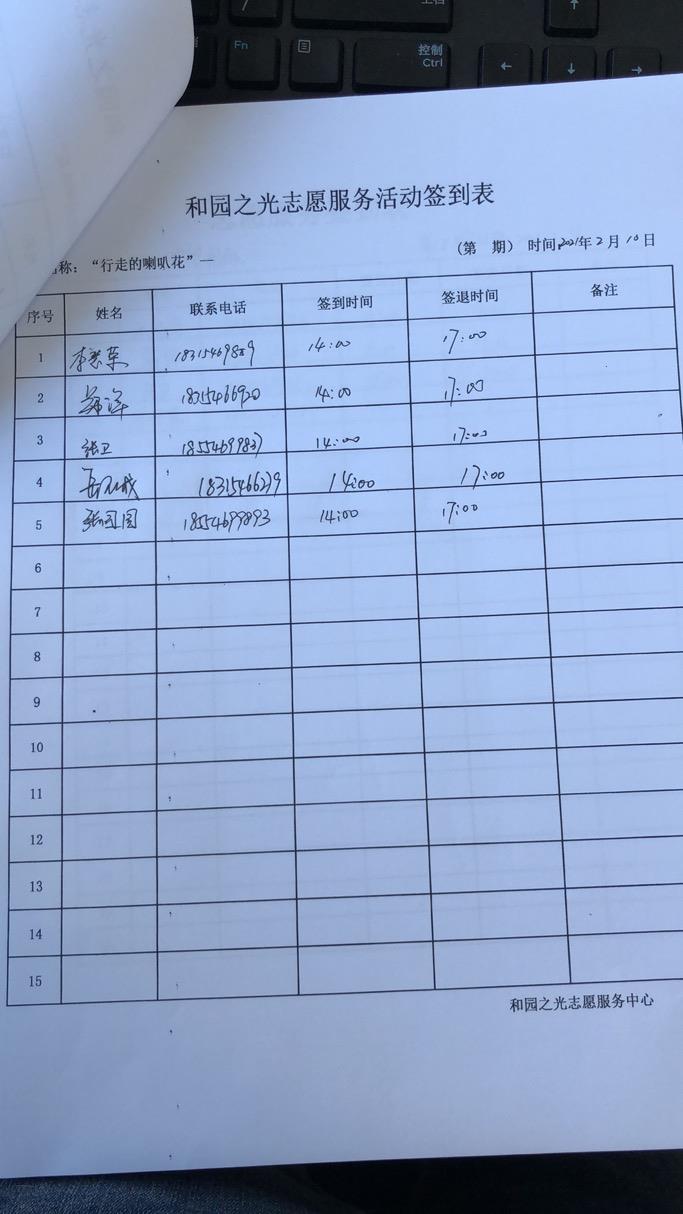 控制
Fn
Ctrl
和园之光志愿服务活动签到表
称：“行走的喇叭花”—
（第 期） 时间2021年2月10日
序号 姓名 联系电话 签到时间 签退时间 备注
1 14:00 17:00
2 18315466920 14:00 17:00
3 张卫 18554699837 14:00 17:00
4 18315466279 14:00 17:00
5 18554699893 14:00 17:00
6
7
8
9
10
11
12
13
14
15
和园之光志愿服务中心